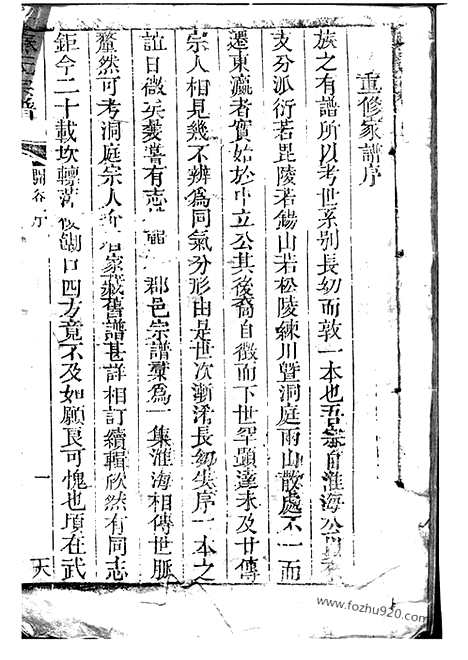 重修家譜序
族之有譜所以考世系别長幼而敦一本也吾宗自淮海公
支分派衍若毘陵若錫山若松陵練川暨洞庭兩山散處不一而
遷東瀛者實始於中立公其後裔自徵而下世罕顯達未及廿傳
宗人相見幾不辨為同氣分形由是世次漸淆長幼失序一本之
誼日微矣葵嘗有志 郡邑宗譜彚為一集淮海相傳世脈
釐然可考洞庭宗人 家藏舊譜甚詳相訂續輯欣然有同志
鉅今二十載坎轗 餬口四方竟不及如願良可愧也頃在武
宗譜
一
天
www.fozhu920.com